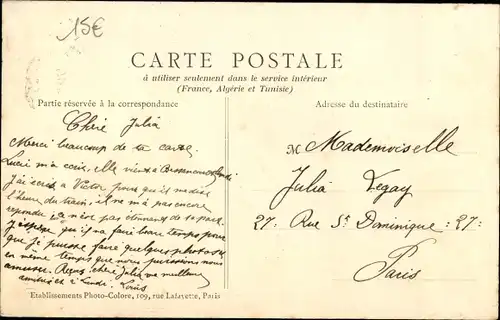 15€
CARTE POSTALE
à utiliser seulement dans le service intérieur
(France, Algérie et Tunisie)
Partie réservée à la correspondance
Adresse du destinataire
Chère Julia
Merci beaucoup de ta carte.
m'a écris, elle vient à lundi
J'ai écris à Victor pour qu'il me dise
l'heure du train, il ne m'a pas encore
répondu, ce n'est pas étonnant de sa part.
J'espère qu'il va faire beau temps pour
que je puisse faire quelques photos
en même temps que nous puissions nous
amuser. Reçois chère Julia ma meilleure
amitié et à Lundi. Louis
M Mademoiselle
Julia Legay
27. Rue St Dominique :27:
Paris
Etablissements Photo-Colore, 109, rue Lafayette, Paris